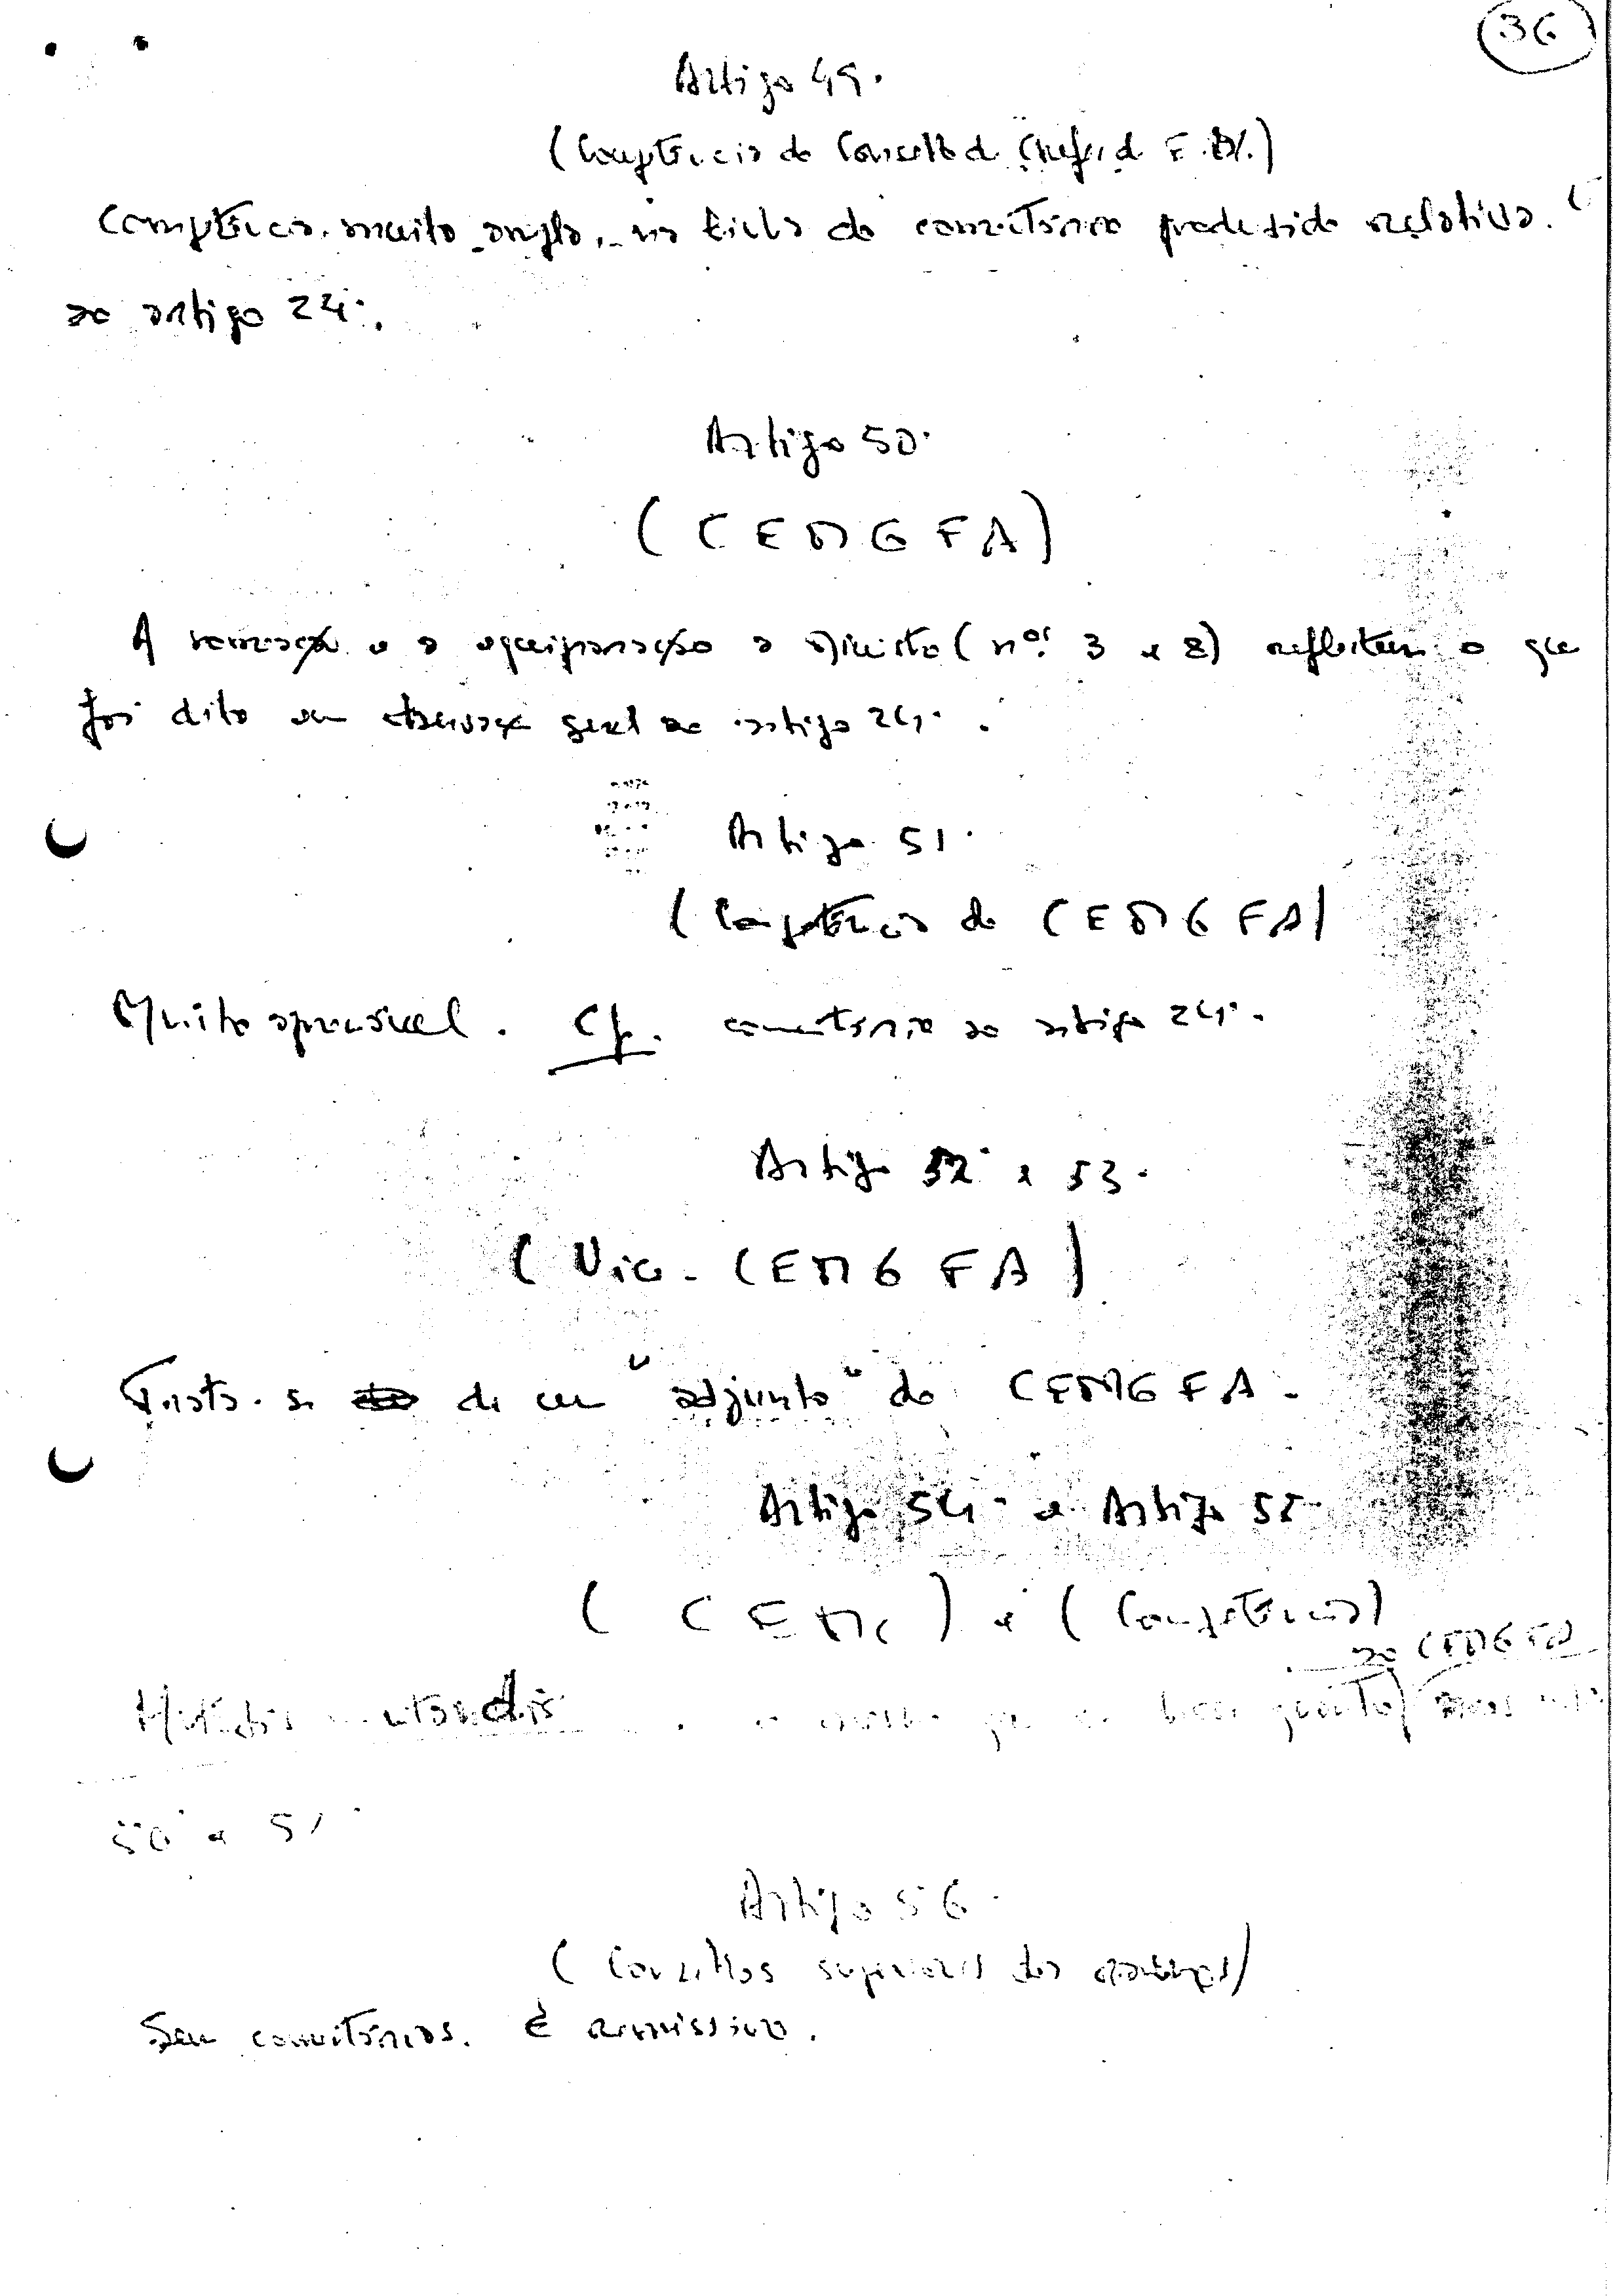 36
Artigo 49.
(Competência do Conselho de Chefes de E. M.)
Competência muito ampla, na linha do comentário produzido relativo
ao artigo 24.
Artigo 50.
(CEMGFA)
A nomeação e a equiparação a Ministro (nos. 3 e 8) reflectem o que
foi dito em observação geral ao artigo 24.
Artigo 51.
(Competência do CEMGFA)
Muito apreciável. Cf. comentário ao artigo 24.
Artigo 52 e 53.
(Vice-CEMGFA)
Trata-se de um "adjunto" do CEMGFA.
Artigo 54 e Artigo 55
(CEM) e (Competência)
Mutatis mutandis que quanto ao CEMGFA
50 e 51
Artigo 56.
(Conselhos superiores dos)
Sem comentários. É remissivo.